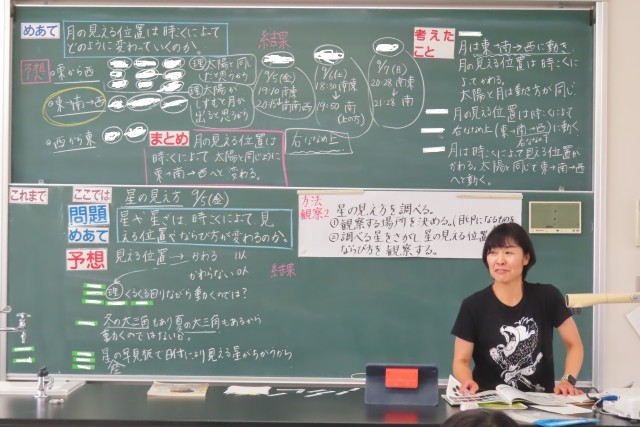 めあて
月の見える位置は時こくによって
どのように変わっていくのか。
予想
東から西
東→南→西
西から東
理 太陽と同
じだと思うから
理 太陽が
しずむと月が
出ると思うから
結果
9/5(金)
19:10 南東
9/6(土)
18:30 南東
19:50 南
9/7(日)
20:28 南東
21:28 南
右ななめ上
まとめ
月の見える位置は
時こくによって太陽と同じように
東→南→西へと変わる。
考えた
こと
月は東→南→西に動き
月の見える位置は時こくに
よってかわる。
太陽と月は動き方が同じ
月の見える位置は時こくによって
右ななめ上(東→南→西)に動く
月は時こくによって見える位置が
かわる。太陽と同じで東→南→西
へと動く。
これまで
ここでは
星の見え方 9/5(金)
問題
めあて
星や星ざは、時こくによって、見
える位置やならび方が変わるのか。
予想
見える位置→かわる 1人
かわらない 0人
結果
理 くるくる回りながら動くのでは?
冬の大三角もあり夏の大三角もあるから
動くのではないか。
星の早見板で時間により見える星がちがうから
方法
観察2
星の見え方を調べる。
①観察する場所を決める。(目印になるものを
②調べる星をさがし星の見える位置
ならび方を観察する。